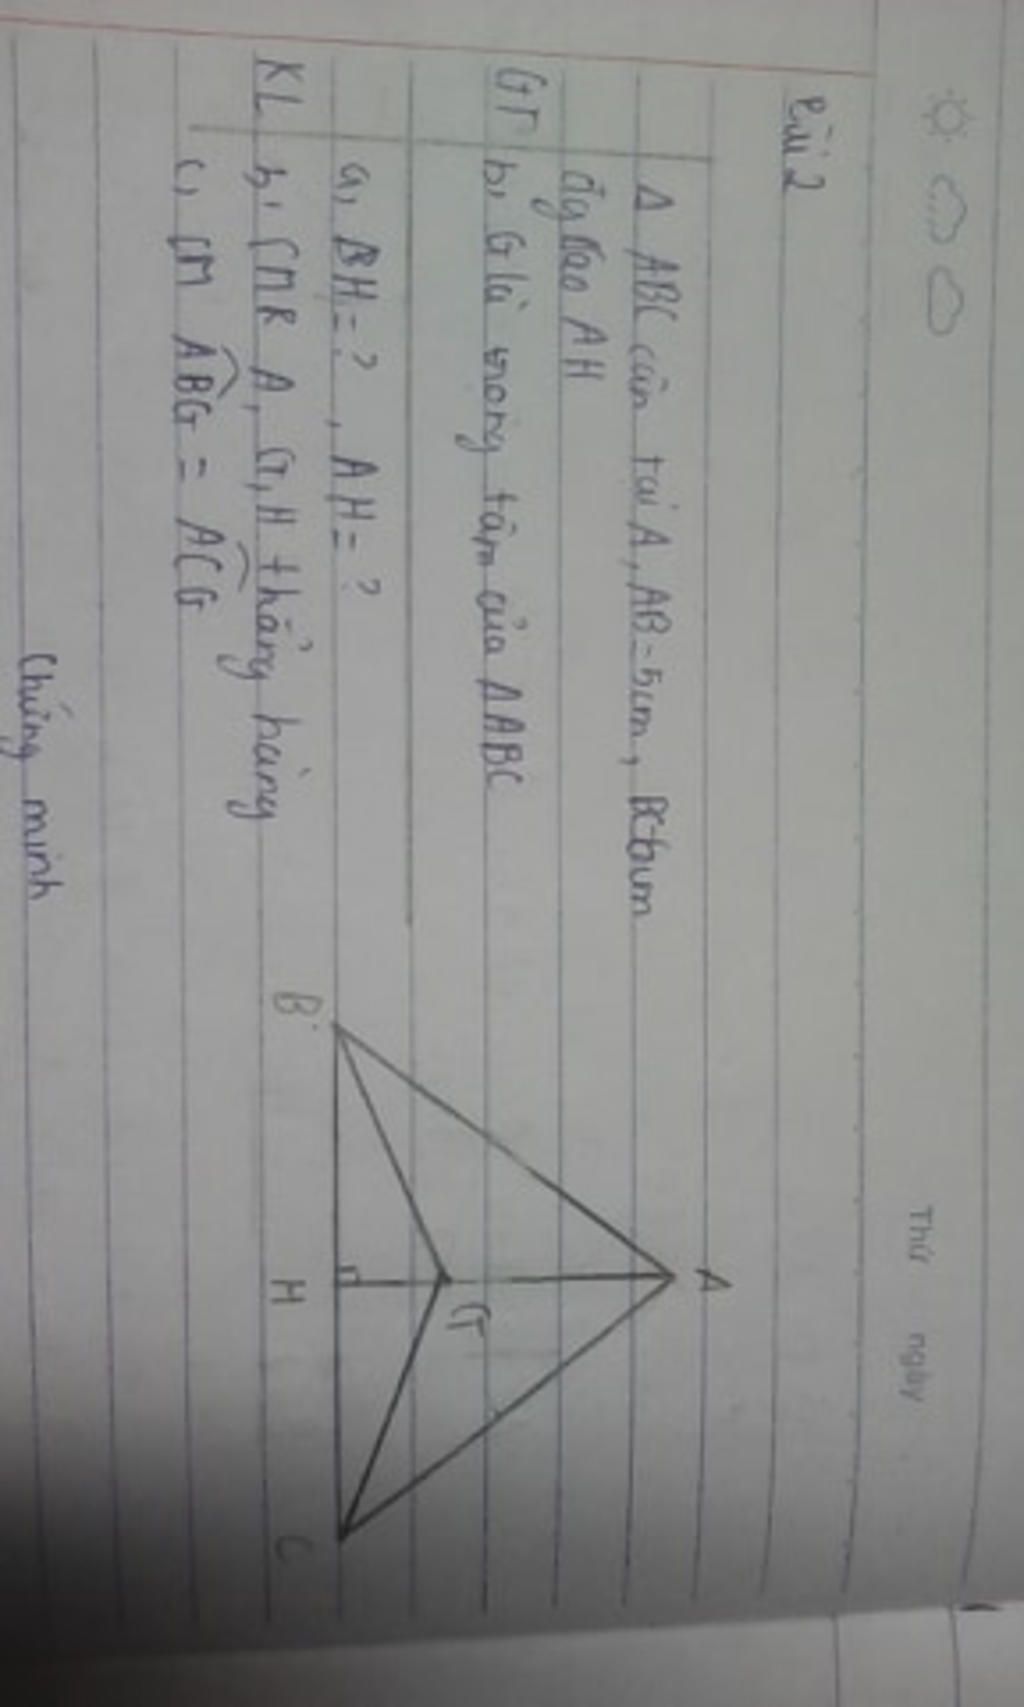 Thứ ngày
Bài 2
Δ ABC cân tại A, AB=5cm, BC=6cm
đg cao AH
GT b, G là trong tâm của ΔABC
a, BH=?, AH=?
KL b, CMR A, G, H thẳng hàng
c, CM ABG = ACG
Chứng minh
A
G
B H C